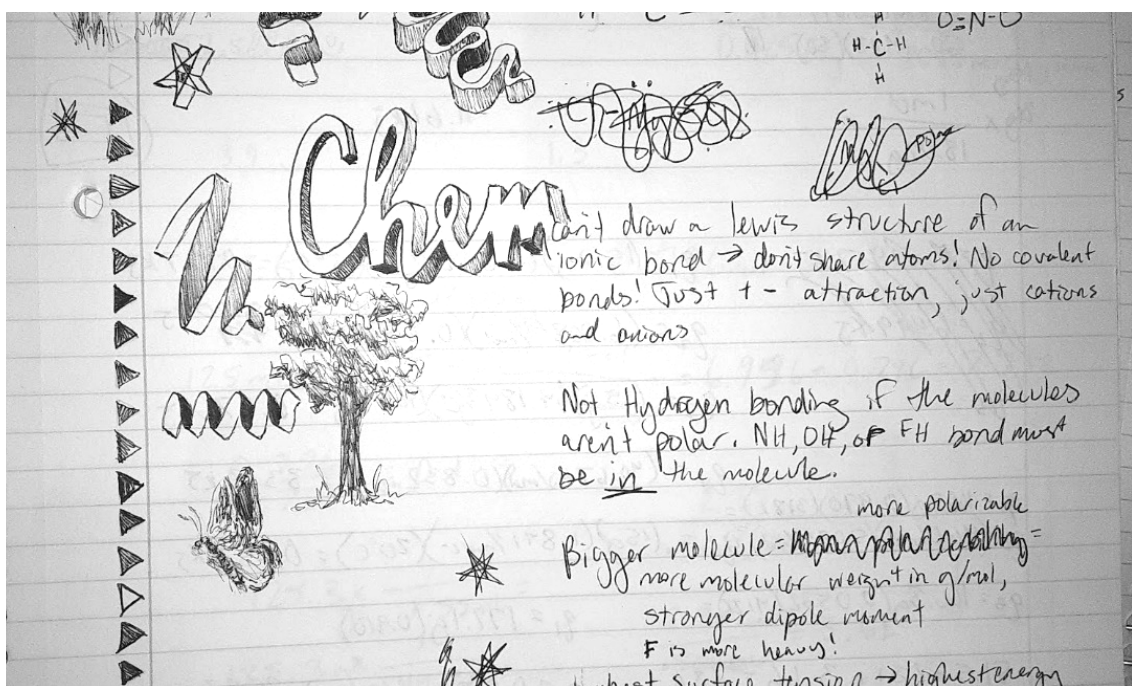 H
H-C-H
H
O=N-O
Chem
polar
can't draw a lewis structure of an
ionic bond → don't share atoms! No covalent
bonds! Just + - attraction, just cations
and anions
Not Hydrogen bonding if the molecules
aren't polar. NH, OH, or FH bond must
be in the molecule.
more polarizable
Bigger molecule = =
more molecular weight in g/mol,
stronger dipole moment
F is more heavy!
surface tension → highest energy